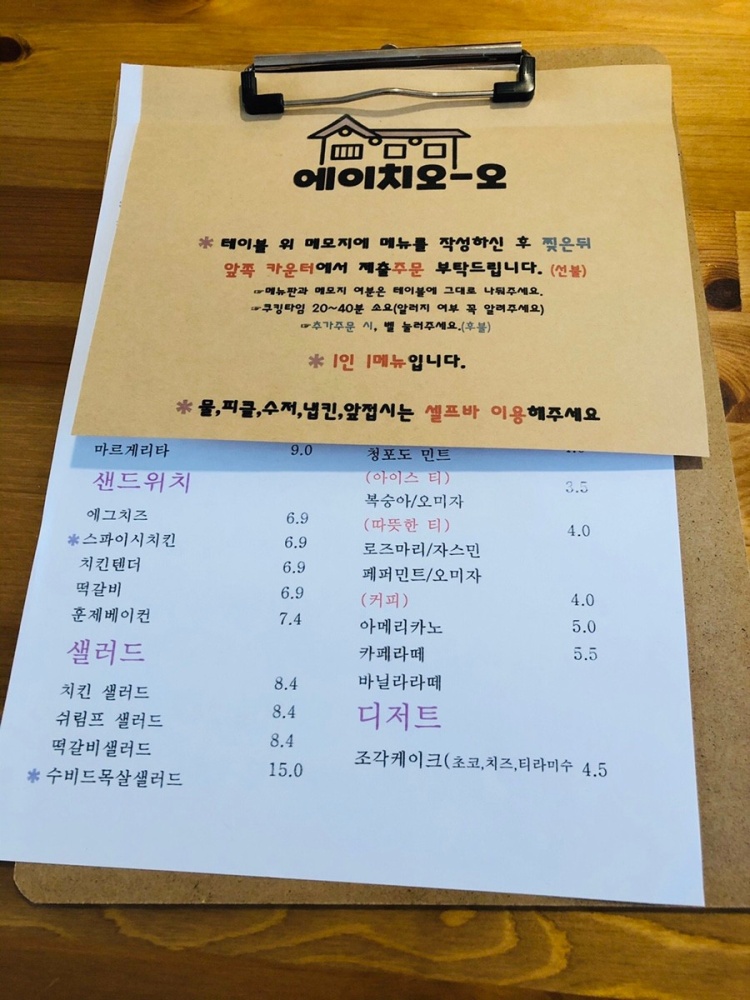 에이치오-오
* 테이블 위 메모지에 메뉴를 작성하신 후 찢은뒤
앞쪽 카운터에서 제출주문 부탁드립니다. (선불)
☞메뉴판과 메모지 여분은 테이블에 그대로 놔둬주세요.
☞쿠킹타임 20~40분 소요(알러지 여부 꼭 알려주세요)
☞추가주문 시, 벨 눌러주세요.(후불)
* 1인 1메뉴입니다.
* 물,피클,수저,냅킨,앞접시는 셀프바 이용해주세요
마르게리타 9.0
샌드위치
에그치즈 6.9
*스파이시치킨 6.9
치킨텐더 6.9
떡갈비 6.9
훈제베이컨 7.4
샐러드
치킨 샐러드 8.4
쉬림프 샐러드 8.4
떡갈비샐러드 8.4
* 수비드목살샐러드 15.0
청포도 민트
(아이스 티) 3.5
복숭아/오미자
(따뜻한 티) 4.0
로즈마리/자스민
페퍼민트/오미자
(커피) 4.0
아메리카노 5.0
카페라떼 5.5
바닐라라떼
디저트
조각케이크(초코,치즈,티라미수 4.5